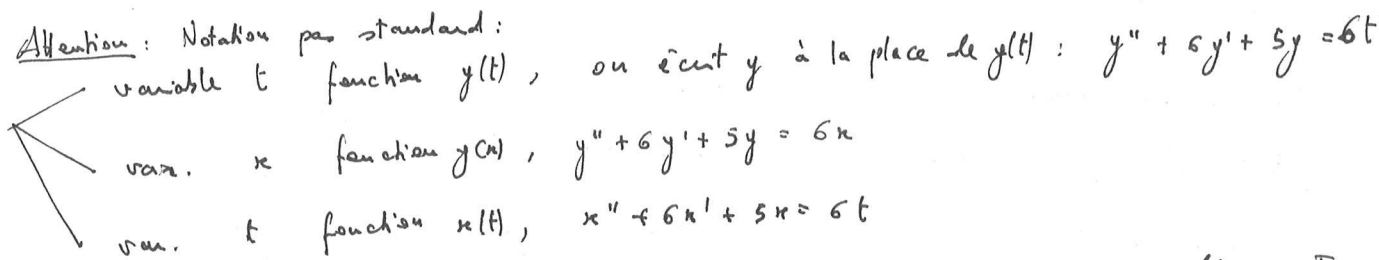 Attention : Notation pas standard :
variable t fonction y(t), on écrit y à la place de y(t) : y" + 6y' + 5y = 6t
var. x fonction y(x), y" + 6y' + 5y = 6x
var. t fonction x(t), x" + 6x' + 5x = 6t